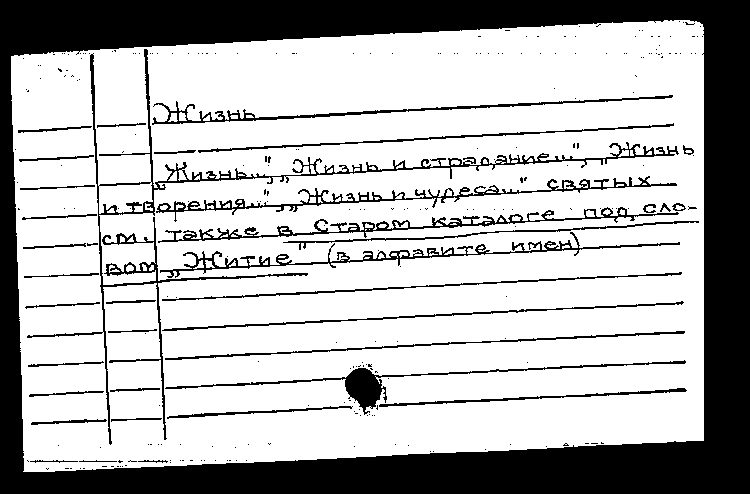 Жизнь
„Жизнь...", „Жизнь и страдание...", „Жизнь
и творения...", „Жизнь и чудеса..." святых
см. также в Старом каталоге под сло-
вом „Житие" (в алфавите имен)